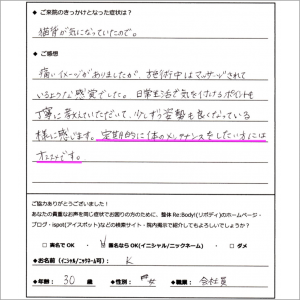 ◆ ご来院のきっかけとなった症状は？
猫背が気になっていたので。
◆ ご感想
痛いイメージがありましたが、施術中はマッサージされて
いるような感覚でした。日常生活で気を付けるポイントも
丁寧に教えていただいて、少しずつ姿勢も良くなっている
様に感じます。定期的に体のメンテナンスをしたい方には
オススメです。
ご協力ありがとうございました！
あなたの貴重なお声を同じ症状でお困りの方のために、整体 Re:Body!（リボディ）のホームページ・
ブログ・ispot（アイスポット）などの検索サイト・院内掲示で紹介してもよろしいでしょうか？
□ 実名で OK ・ ☑ 匿名なら OK（イニシャル/ニックネーム） ・ □ ダメ
◆お名前（イニシャル/ニックネーム可）： K
◆年齢： 30 歳 ◆性別： 女 ◆職業： 会社員